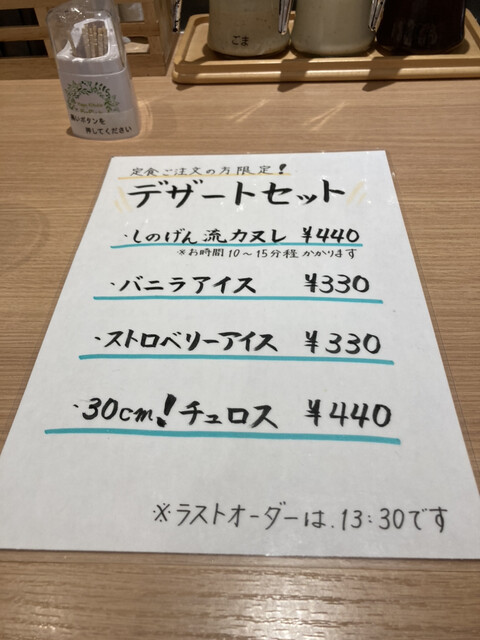 ごま
押してください
定食ご注文の方限定!
デザートセット
・しのげん流カヌレ ¥440
※お時間10~15分程かかります
・バニラアイス ¥330
・ストロベリーアイス ¥330
・30cm!チュロス ¥440
※ラストオーダーは.13:30です